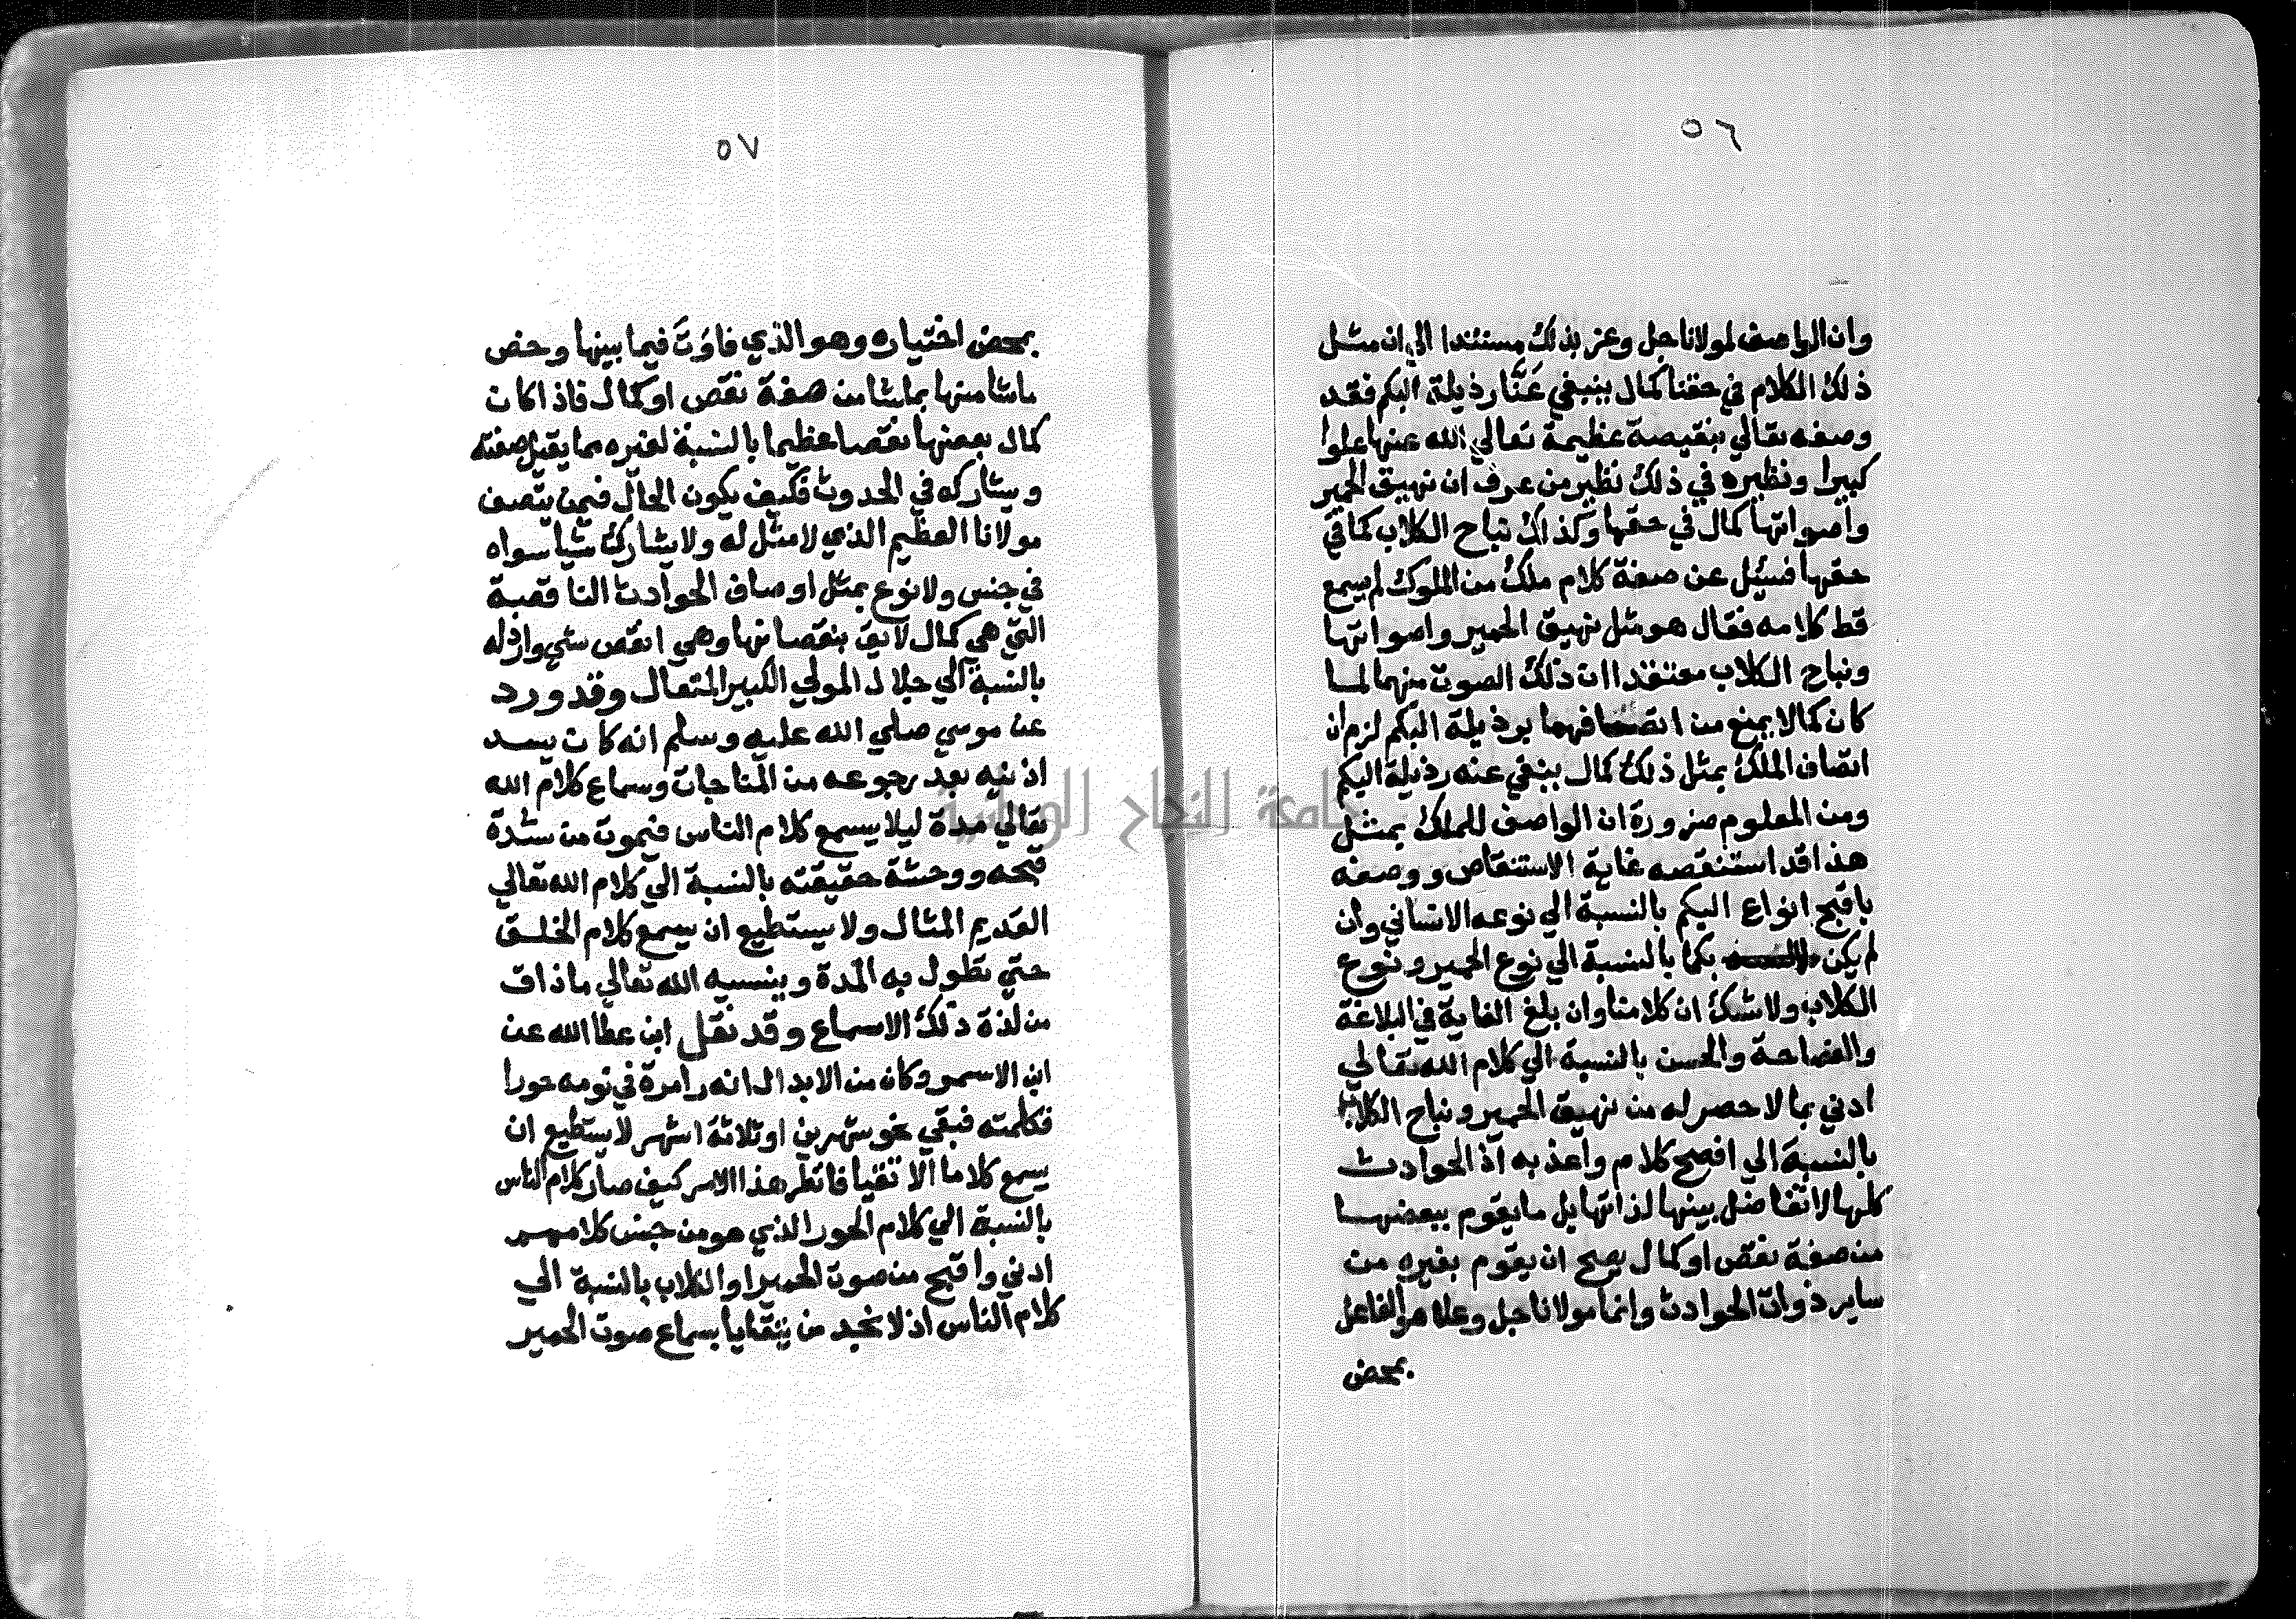 ٥٦
وان الواصف لمولانا جل وعز بذلك مستندا الي ان مثل
ذلك الكلام في حقنا كمال ينبغي عَنَّا رذيلة البكم فقد
وصفه تقالي بنقيصة عظيمة تعالي الله عنها علوا
كبيرا ونظيره في ذلك نظير من عرف ان نهيق الحمير
واصواتها كمال في حقها وكذلك نباح الكلاب كما في
حقها فسئل عن صفة كلام ملك من الملوك لم يسمع
قط كلامه فقال هو مثل نهيق الحمير واصواتها
ونباح الكلاب معتقدا ان ذلك الصوت منهما لما
كان كمالا يمنع من اتصافهما برذيلة البكم لزم ان
اتصاف الملك بمثل ذلك كمال ينفي عنه رذيلة البكم
ومن المعلوم ضرورة ان الواصف للملك بمثل
هذا قد استنقصه غاية الاستنقاص ووصفه
باقبح انواع البكم بالنسبة الي نوعه الانساني وان
لم يكن بكما بالنسبة الي نوع الحمير ونوع
الكلاب ولا شك ان كلامنا وان بلغ الغاية في البلاغة
والفصاحة والحسن بالنسبة الي كلام الله تقالي
ادني بما لا حصر له من نهيق الحمير ونباح الكلاب
بالنسبة الي افصح كلام واعذبه اذ الحوادث
كلها لا تفاضل بينها لذاتها بل ما يقوم ببعضها
من صفة نقص او كمال يصح ان يقوم بغيره من
ساير ذوات الحوادث وانما مولانا جل وعلا هو الفاعل
بمحض
٥٧
بمحض اختياره وهو الذي فاوَتَ فيما بينها وخص
ما شا منها بما شا من صفة نقص او كمال فاذا كان
كمال بعضها نقصا عظيما بالنسبة لغيره مما يقبل صفته
ويشاركه في الحدوث فكيف يكون الحال فيمن يتصف
مولانا العظيم الذي لا مثل له ولا يشارك شيا سواه
في جنس ولا نوع بمثل اوصاف الحوادث الناقصة
التي هي كمال لايق بنقصانها وهي انقص شي وارذله
بالنسبة الي جلال المولي الكبير المتعال وقد ورد
عن موسي صلي الله عليه وسلم انه كان يسد
اذنيه بعد رجوعه من المناجات وسماع كلام الله
تقالي مدة ليلا يسمع كلام الناس فيموت من شدة
قبحه ووحشة حقيقته بالنسبة الي كلام الله تقالي
القديم المثال ولا يستطيع ان يسمع كلام الخلق
حتي تطول به المدة وينسيه الله تعالي ما ذاق
من لذة ذلك الاسماع وقد نقل ابن عطا الله عن
ابن الاسمر وكان من الابدال انه را مرة في نومه حورا
فكلمته فبقي نحو شهرين او ثلاثة اشهر لا يستطيع ان
يسمع كلاما الا تقيا فانظر هذا الامر كيف صار كلام الناس
بالنسبة الي كلام الحور الذي هو من جنس كلامهم
ادني واقبح من صوت الحمير او الكلاب بالنسبة الي
كلام الناس اذ لا نجد من يتقايا بسماع صوت الحمير
جامعة النجاح الوطنية